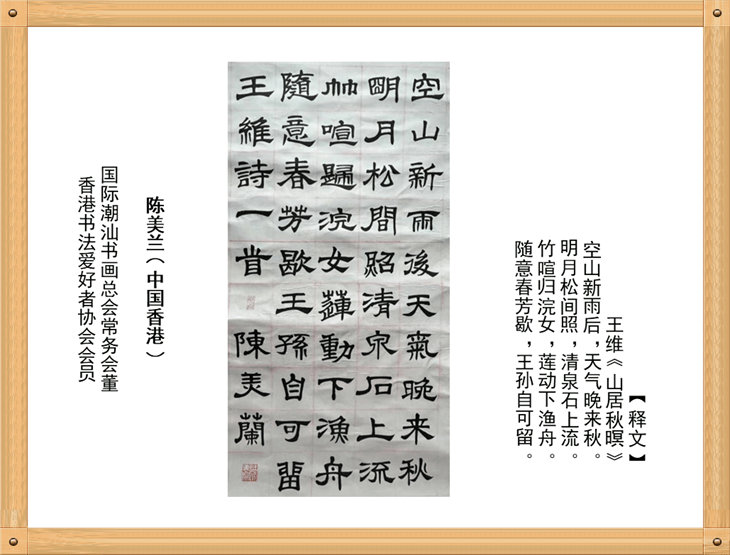 【释文】
王维《山居秋暝》
空山新雨后，天气晚来秋。
明月松间照，清泉石上流。
竹喧归浣女，莲动下渔舟。
随意春芳歇，王孙自可留。
空山新雨後天氣晚来秋
眀月松間照清泉石上流
竹喧歸浣女蓮動下漁舟
隨意春芳歇王孫自可留
王維詩一首 陳美蘭
陈美兰（中国香港）
国际潮汕书画总会常务会董
香港书法爱好者协会会员